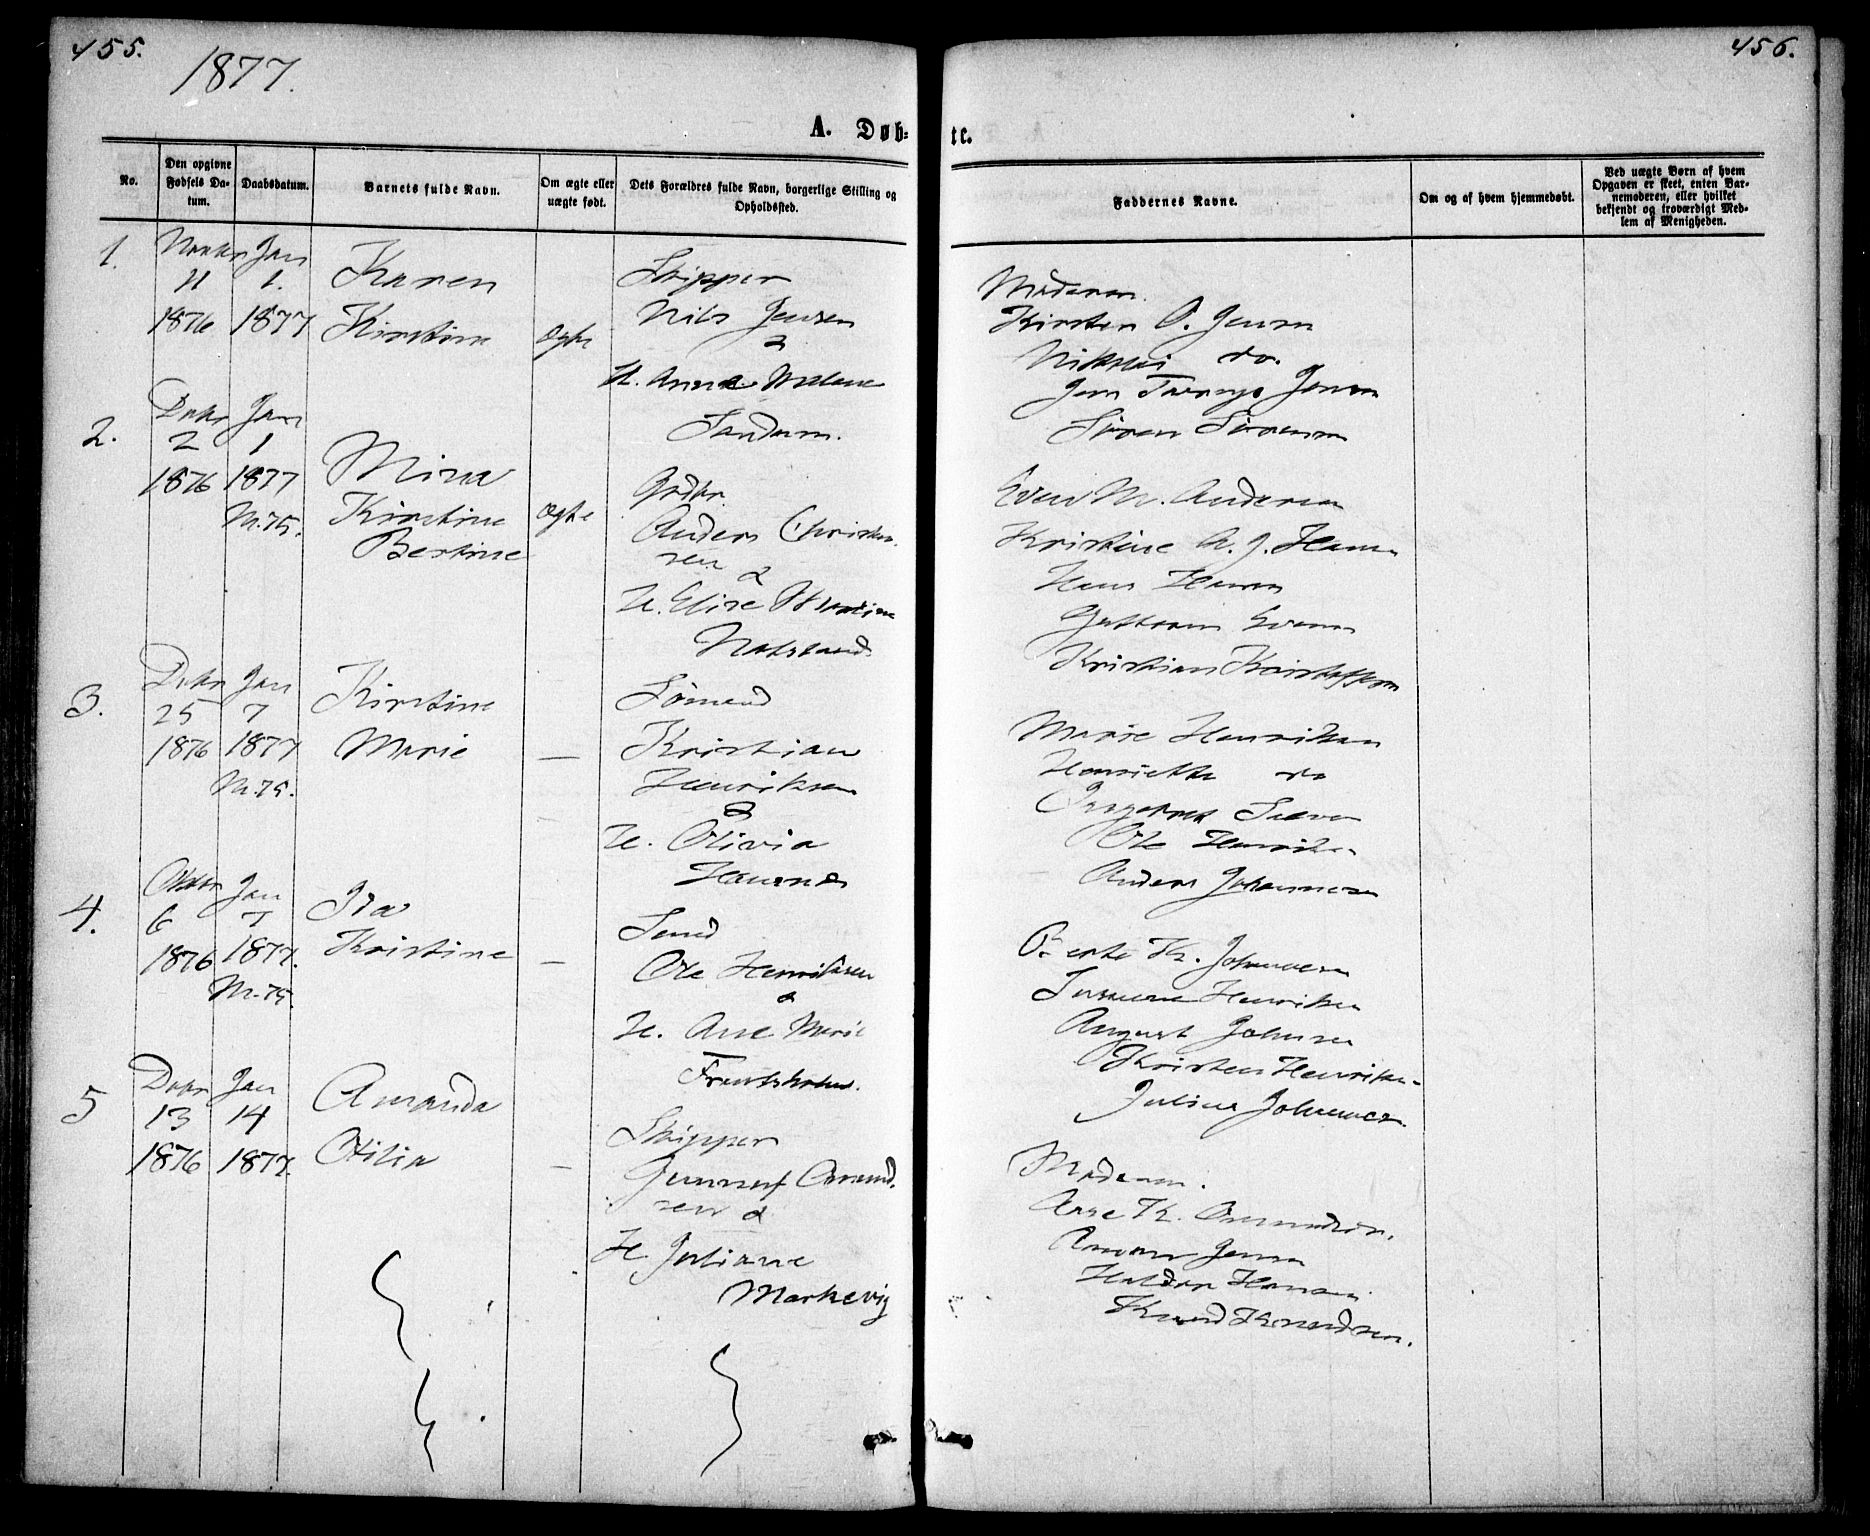 455.
1877.
456.
A. Døb-
te.
No.
Den opgivne Fødsels Da-tum.
Daabsdatum.
Barnets fulde Navn.
Om ægte eller uægte født.
Dets Forældres fulde Navn, borgerlige Stilling og Opholdssted.
Faddernes Navne.
Om og af hvem hjemmedøbt.
Ved uægte Børn af hvem Opgaven er skeet, enten Bar-nemoderen, eller hvilket bekjendt og troværdigt Med-lem af Menigheden.
1.
Novbr Jan
11 1.
1876 1877
Karen
Kirstine
ægte
Skipper
Nils Jensen
&
H. Anna Malene
Sandum.
Moderen.
Kirsten O. Jensen
Nikolai do.
Jen Jensen
Søren Sørensen
2.
Debr Jan
2 1
1876 1877
M.75.
Mina
Kirstine
Bertine
ægte
Grdbr
Anders Christen-
sen &
H. Elise
Even M. Andersen
Kristine A. J. Hansen
Hans Hansen
Evensen
Kristian Kristoffersen
3.
Debr Jan
25 7
1876 1877
M.75.
Kirstine
Marie
—
Sømand
Kristian
Henriksen
&
H. Olivia
Havsnes
Marie Henriksen
Henriette do
Ingeborg
Ole Henriksen
Anders Johannesen
4.
Oktbr Jan
6 7
1876 1877.
M.75.
Ida
Kristine
—
Smd
Ole Henriksen
&
H. Ane Marie
Berte K. Johannesen
Susanne Henriksen
August Johnsen
Kristen Henriksen
Julius Johannesen.
5
Debr Jan
13 14
1876 1877.
Amanda
Otilia
—
Skipper
Gunnuf Omund-
sen &
H. Juliane
Markevig
Moderen.
Aase K. Omundsen.
Jensen
Haldor Hansen
Knud Knudsen.